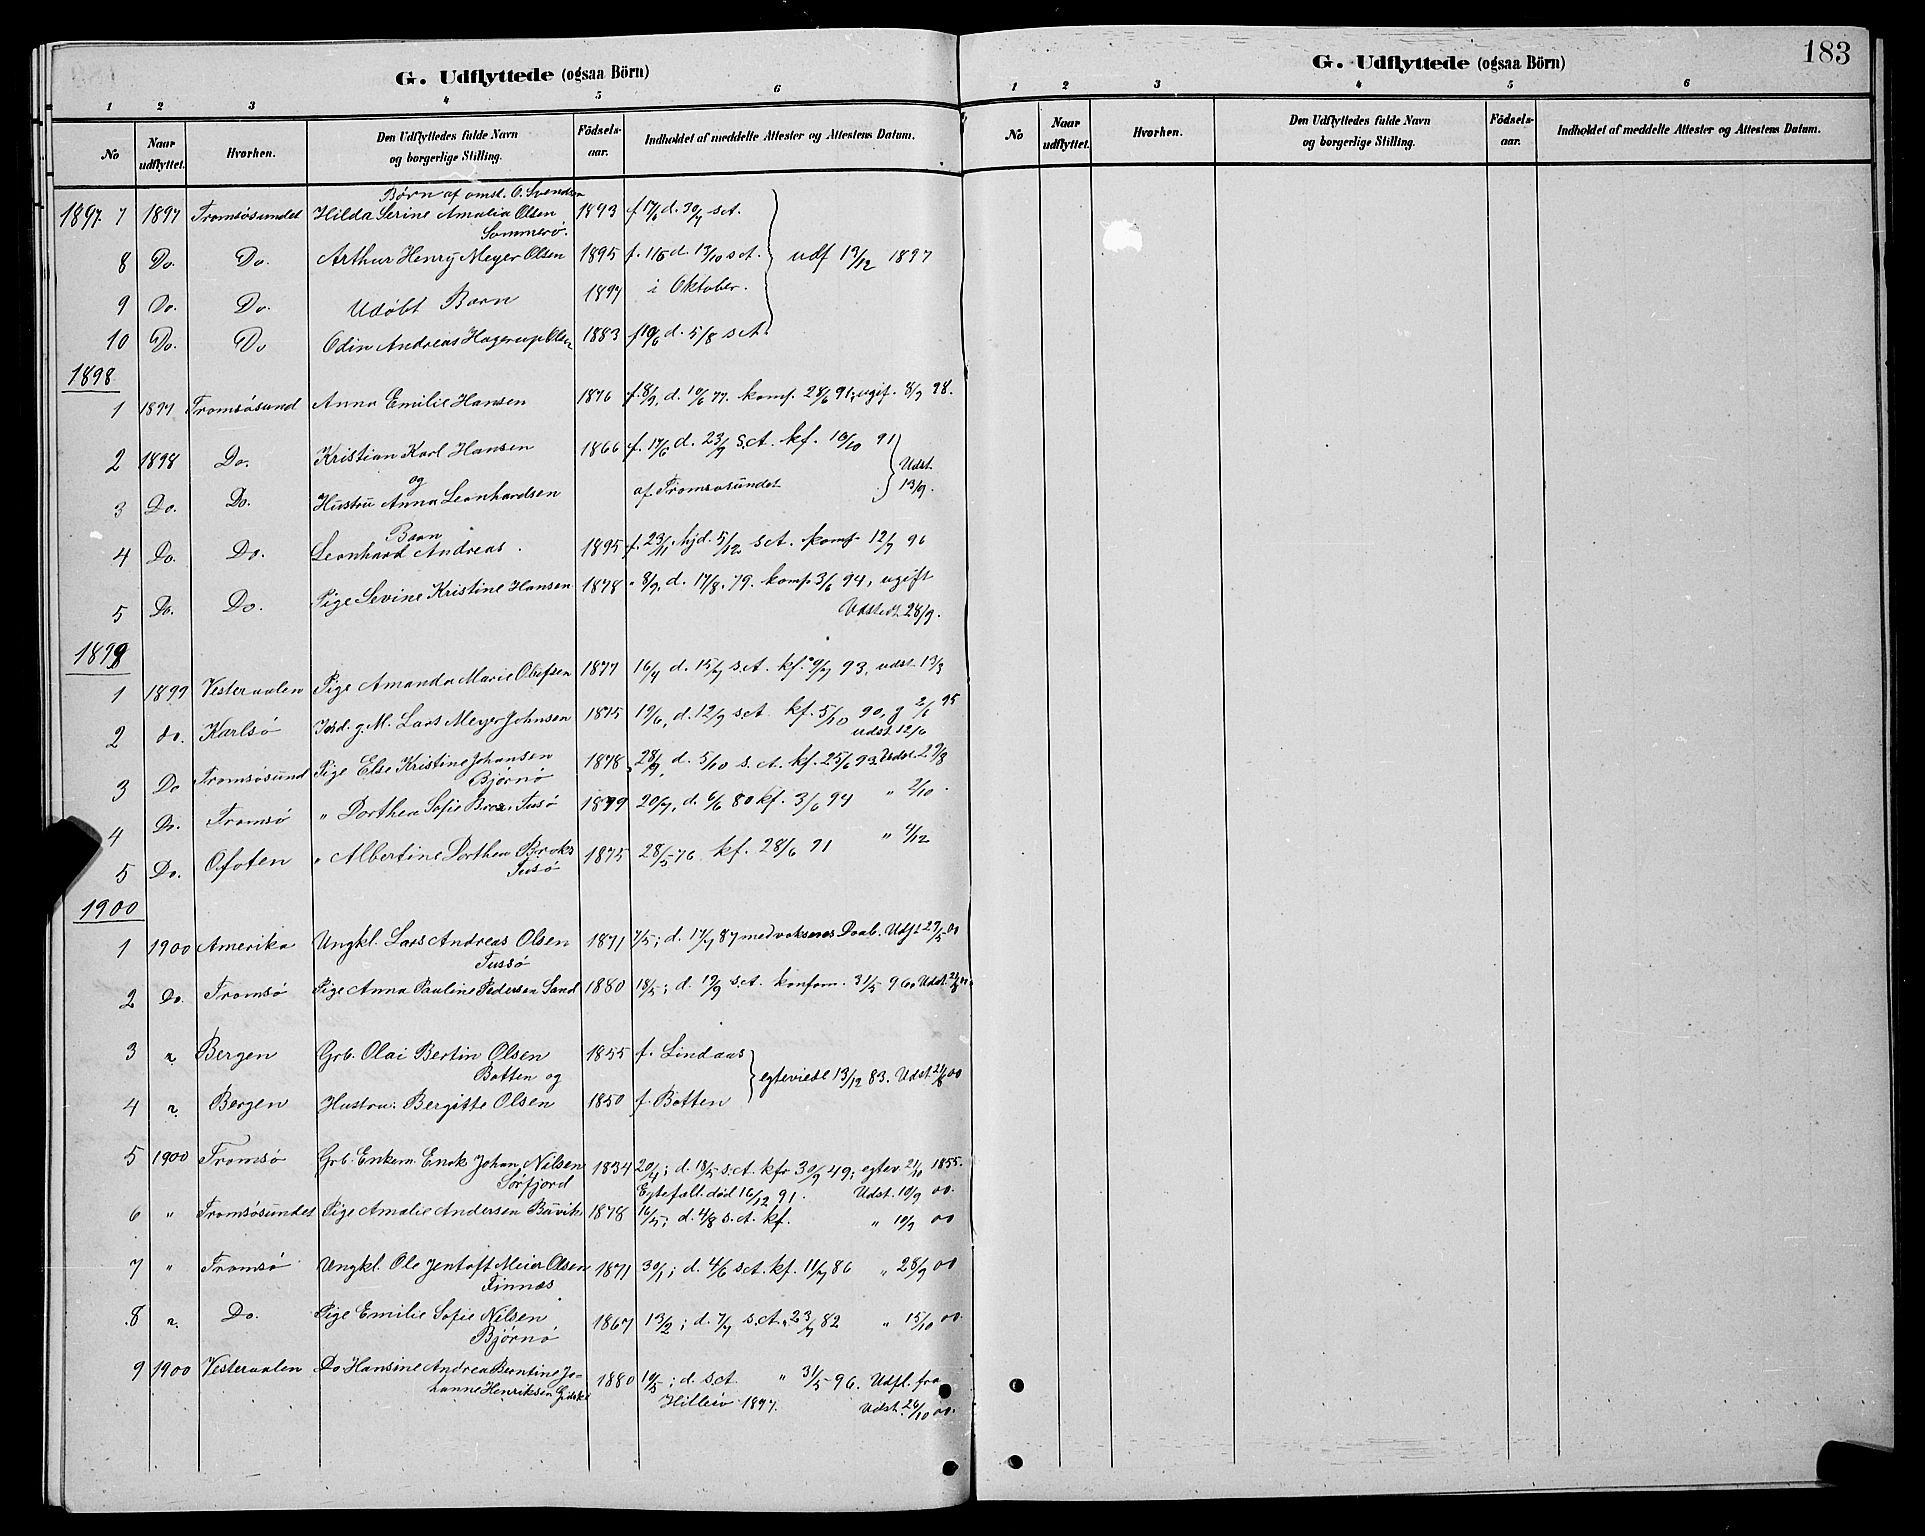 G. Udflyttede (ogsaa Börn)
1 2 3 4 5 6
No Naar udflyttet. Hvorhen. Den Udflyttedes fulde Navn og borgerlige Stilling. Födsels-aar. Indholdet af meddelte Attester og Attestens Datum.
Børn af omst. O. Svendsen
1897. 7 1897 Tromsøsundet Hilda Serine Amalia Olsen 1893 f 17/6 d. 30/7 s.A.
Sommerø.
8 Do. Do. Arthur Henry Meyer Olsen 1895 f. 1/5 d. 13/10 s.A. udf 19/12 1897
9 Do. Do. Udøbt Barn 1897 i Oktober.
10 Do. Do Odin Andreas Hagerup Olsen 1883 f 10/6 d. 5/8 s.A.
1898
1 1897 Tromsøsund Anna Emilie Hansen 1876 f. 8/9, d. 10/6 77. konf. 28/6 91, ugif. 8/9 98.
2 1898 Do. Kristian Karl Hansen 1866 f. 17/6 d. 23/9 s.A. kf. 10/10 91
og Udst.
3 Do. Do. Hustru Anna Leonhardsen af Tromsøsundet 13/9.
Barn
4 Do. Do. Leonhard Andreas. 1895 f. 23/11 hjd. 5/12 s.A. komf 12/7 96
5 Do. Do. Pige Sevine Kristine Hansen 1878 " 8/9, d. 17/8. 79. konf 3/6 94, ugift
Udstedt 28/9.
1899
1 1899 Vesteraalen Pige Amanda Marie Olufsen 1877 16/4 d. 15/7 s.A. kf. 9/7 93, udst 13/3
2 do. Karlsø Jord. g.M. Lars Meyer Johnsen 1875 19/6, d. 12/9 s.A. kf. 5/10 90, g 2/6 95
udst. 12/6
3 Do Tromsøsund Pige Else Kristine Johansen 1878 28/9, d. 5/10 s.A. kf. 25/6 93. Udst. 29/8
Bjørnø
4 Do. Tromsø " Dorthea Sofie Tusø 1879 20/7, d. 6/6 80 kf. 3/6 94 " 2/10.
5 Do. Ofoten " Albertine Dorthea Broks 1875 28/5 76 kf. 28/6 91 " 4/12
Tusø
1900
1 1900 Amerika Ungkl. Lars Andreas Olsen 1871 7/5; d. 17/7 87 med voksenes Daab. Udst 29/5 00
Tussø
2 Do. Tromsø Pige Anna Pauline Pedersen Sand 1880 18/5; d. 19/9 s.A. konfom. 31/5 96. Udst.
3 " Bergen Grb. Olai Bertin Olsen 1855 f. Lindaas
Botten og egteviede 13/12 83. Udst 00
4 " Bergen Hustru: Bergitte Olsen 1850 f. Botten
5 1900 Tromsø Grb. Enkem. Enok Johan Nilsen 1834 20/4; d. 18/5 s.A. kfr 30/9 49; egtev. 21/10 1855.
Sørfjord Egtefall. død 16/12 91. Udst. 10/9 00.
6 " Tromsøsundet Pige Amalie Andersen Buvik 1878 16/5; d. 4/8 s.A. kf. " 10/9 00
7 " Tromsø Ungkl. Ole Jentoft Meier Olsen 1871 30/1; d. 4/6 s.A. kf. 11/7 86 " 28/9 00
Finnæs
8 " Do. Pige Emilie Sofie Nilsen 1867 13/2; d. 7/7 s.A. " 23/7 82 " 15/10 00.
Bjørnø
9 1900 Vesteraalen Do Hansine Andrea Berntine Jo- 1880 10/5; d. s.A. " 31/5 96. Udfl. fra
hanne Henriksen Gidskø Hillesø 1897. Udst. 26/10 00.
183
G. Udflyttede (ogsaa Börn)
1 2 3 4 5 6
No Naar udflyttet. Hvorhen. Den Udflyttedes fulde Navn og borgerlige Stilling. Födsels-aar. Indholdet af meddelte Attester og Attestens Datum.